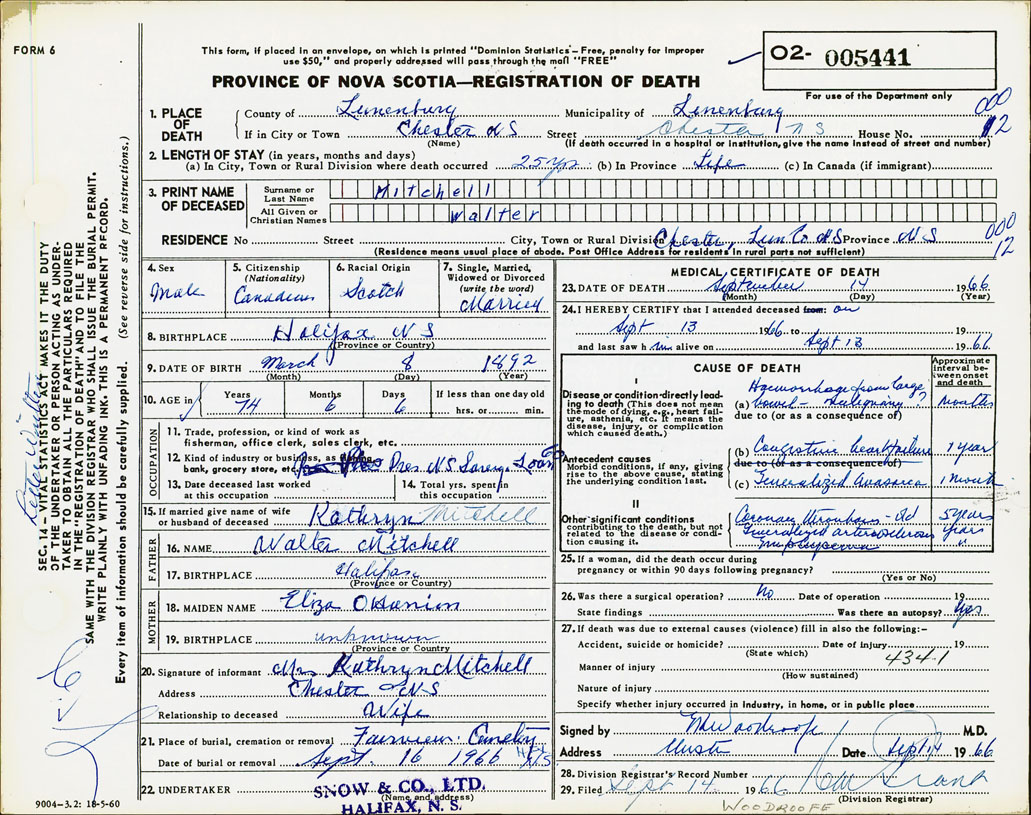 FORM 6
This form, if placed in an envelope, on which is printed "Dominion Statistics - Free, penalty for improper
use $50," and properly addressed will pass through the mail "FREE"
02- 005441
PROVINCE OF NOVA SCOTIA—REGISTRATION OF DEATH
For use of the Department only
000
12
1. PLACE OF DEATH
County of Lunenburg Municipality of Lunenburg
If in City or Town Chester N S Street Chester N S House No.
(Name) (If death occurred in a hospital or institution, give the name instead of street and number)
2. LENGTH OF STAY (in years, months and days)
(a) In City, Town or Rural Division where death occurred 25 yrs. (b) In Province Life (c) In Canada (if immigrant)
3. PRINT NAME OF DECEASED
Surname or Last Name Mitchell
All Given or Christian Names Walter
RESIDENCE No Street City, Town or Rural Division Chester, Lun Co N S Province N S
000
12
(Residence means usual place of abode. Post Office Address for residents in rural parts not sufficient)
4. Sex Male
5. Citizenship (Nationality) Canadian
6. Racial Origin Scotch
7. Single, Married, Widowed or Divorced (write the word) Married
8. BIRTHPLACE Halifax N S
(Province or Country)
9. DATE OF BIRTH March 8 1892
(Month) (Day) (Year)
10. AGE in Years 74 Months 6 Days 6 If less than one day old hrs. or min.
OCCUPATION
11. Trade, profession, or kind of work as
fisherman, office clerk, sales clerk, etc.
12. Kind of industry or business, as fishing,
bank, grocery store, etc. Pres. N S Savings Loan Co
13. Date deceased last worked at this occupation
14. Total yrs. spent in this occupation
15. If married give name of wife or husband of deceased Kathryn Mitchell
FATHER
16. NAME Walter Mitchell
17. BIRTHPLACE Halifax
(Province or Country)
MOTHER
18. MAIDEN NAME Eliza
19. BIRTHPLACE unknown
(Province or Country)
20. Signature of informant Mrs Kathryn Mitchell
Address Chester N S
Relationship to deceased Wife
21. Place of burial, cremation or removal Fairview Cemetery
Date of burial or removal Sept. 16 1966
22. UNDERTAKER SNOW & CO., LTD.
(Name and address)
HALIFAX, N. S.
9004-3.2: 18-5-60
MEDICAL CERTIFICATE OF DEATH
23. DATE OF DEATH September 14 1966
(Month) (Day) (Year)
24. I HEREBY CERTIFY that I attended deceased from: on
Sept 13 1966 to 19
and last saw him alive on Sept 13 1966
CAUSE OF DEATH
Approximate interval between onset and death
I
Disease or condition directly leading to death (This does not mean the mode of dying, e.g., heart failure, asthenia, etc. It means the disease, injury, or complication which caused death.)
Haemorrhage from large
(a) bowel - malignancy? months
due to (or as a consequence of)
Antecedent causes
Morbid conditions, if any, giving rise to the above cause, stating the underlying condition last.
(b) Congestive heart failure 1 year
due to (or as a consequence of)
(c) Generalized Anasarca 1 month
II
Other significant conditions contributing to the death, but not related to the disease or condition causing it.
Coronary thrombosis - old 5 years
Generalized arteriosclerosis years
Emphysema "
25. If a woman, did the death occur during
pregnancy or within 90 days following pregnancy?
(Yes or No)
26. Was there a surgical operation? No Date of operation 19
State findings Was there an autopsy? Yes
27. If death was due to external causes (violence) fill in also the following:-
Accident, suicide or homicide? Date of injury 19
(State which) 434.1
Manner of injury
(How sustained)
Nature of injury
Specify whether injury occurred in industry, in home, or in public place
Signed by Woodroofe M.D.
Address Chester Date Sept 14 1966
28. Division Registrar's Record Number
29. Filed Sept 14 1966
(Division Registrar)
WOODROOFE
SEC. 14 - VITAL STATISTICS ACT MAKES IT THE DUTY
OF THE UNDERTAKER OR PERSON ACTING AS UNDER-
TAKER TO OBTAIN ALL THE PARTICULARS REQUIRED
IN THE "REGISTRATION OF DEATH" AND TO FILE THE
SAME WITH THE DIVISION REGISTRAR WHO SHALL ISSUE THE BURIAL PERMIT.
WRITE PLAINLY WITH UNFADING INK. THIS IS A PERMANENT RECORD.
Every item of information should be carefully supplied. (See reverse side for instructions.)